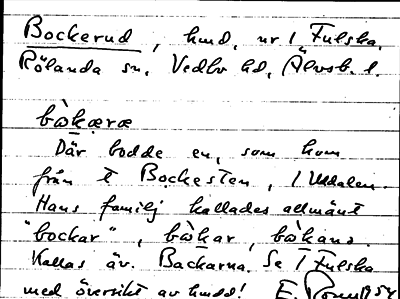 Bockerud, hmd, nr 1 Fulska,
Rölanda sn, Vedbo hd, Älvsb. l.
bòkæræ
Där bodde en, som kom
från t Bockesten, 1 Undalen.
Hans familj kallades allmänt
"bockar", bòkar, bòkans.
Kallas äv. Backarna. Se 1 Fulska
med översikt av hmd!